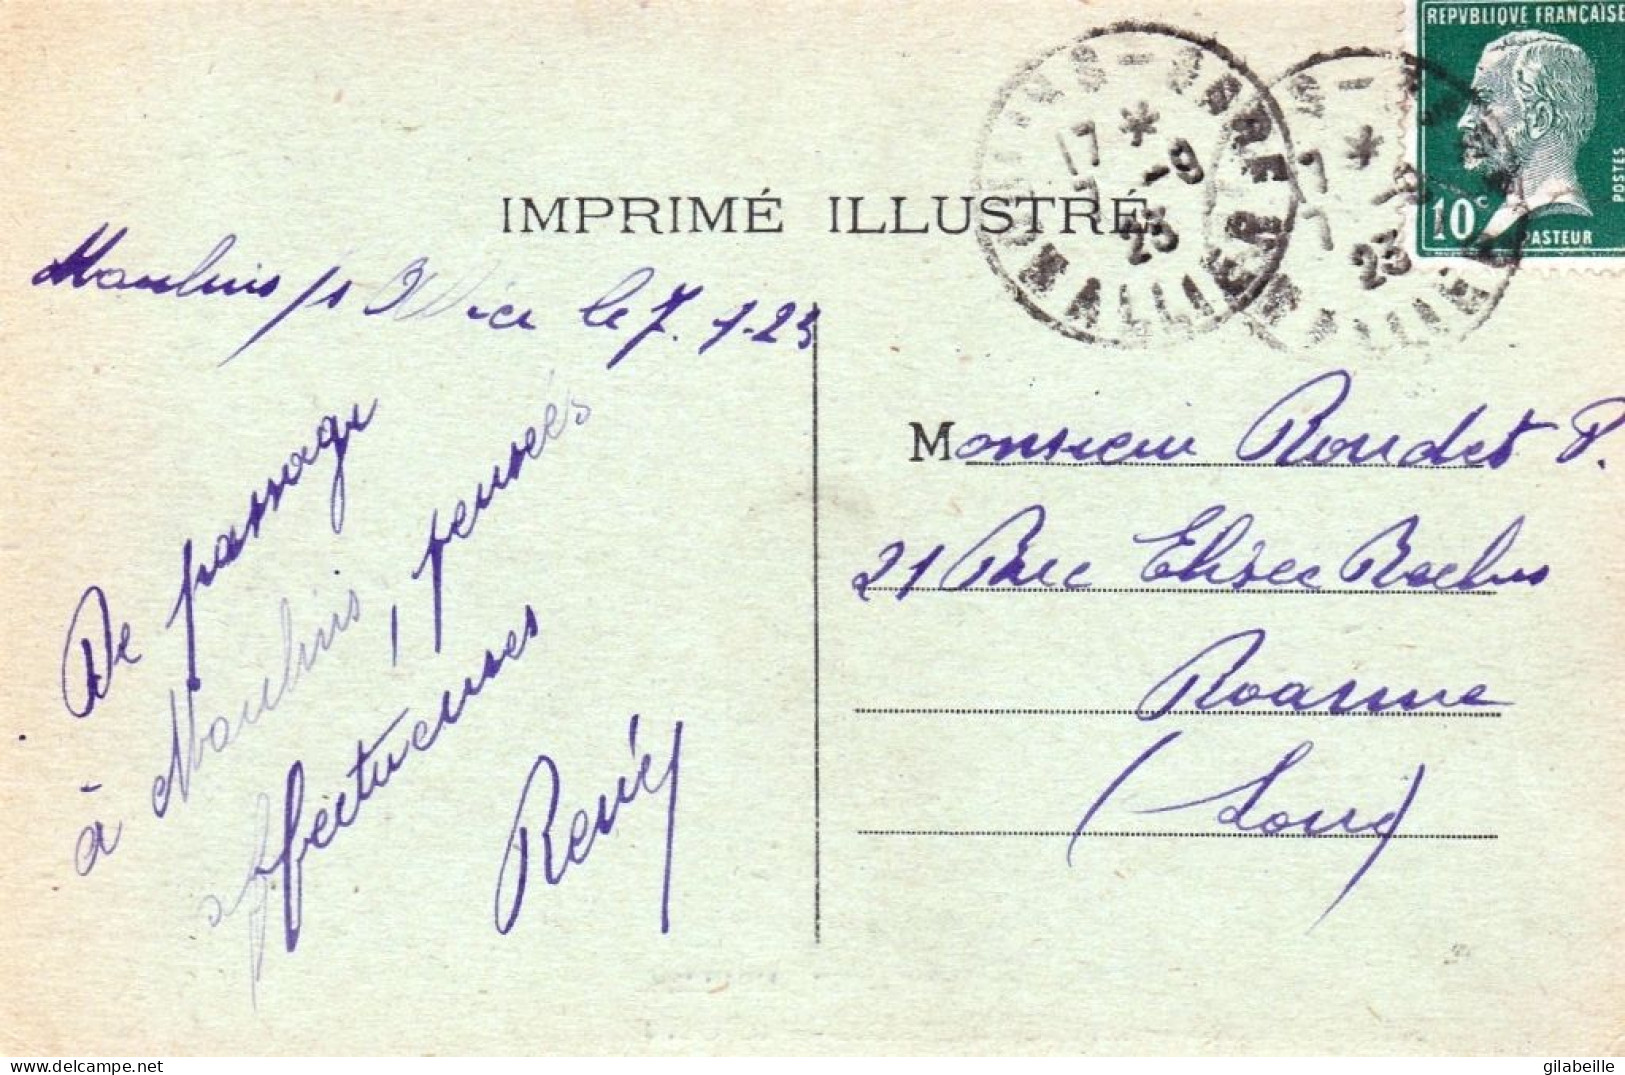 REPVBLIQVE FRANÇAISE
POSTES
10c
PASTEUR
MOULINS-GARE
17 * -9
7
23
ALLIER
IMPRIMÉ ILLUSTRÉ
Moulins s/ Allier le 7.7.23
De passage
à Moulins, pensées
affectueuses
René
Monsieur Roudet P.
21 Rue Elisée Reclus
Roanne
(Loire)
gilabeille